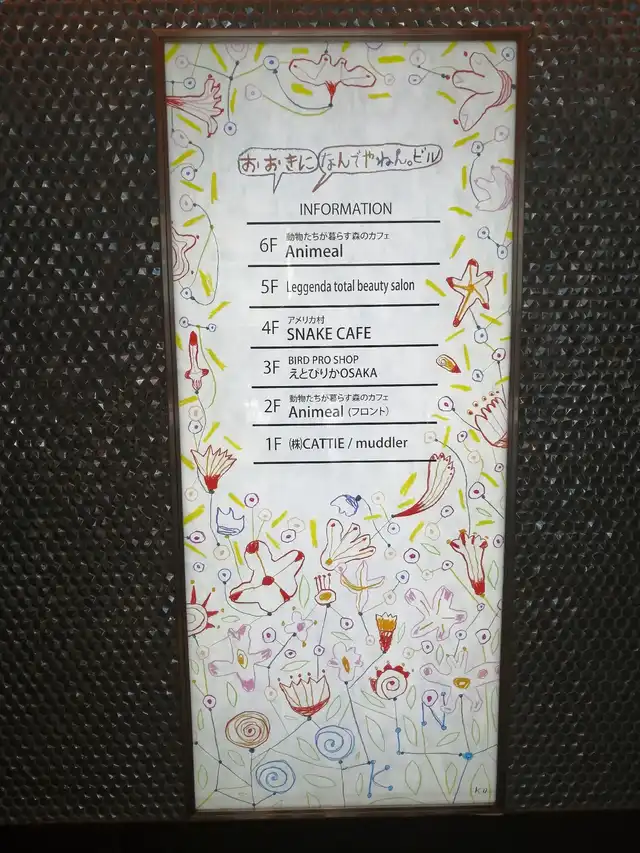 おおきに なんでやねん。ビル
INFORMATION
6F 動物たちが暮らす森のカフェ
Animeal
5F Leggenda total beauty salon
4F アメリカ村
SNAKE CAFE
3F BIRD PRO SHOP
えとぴりかOSAKA
2F 動物たちが暮らす森のカフェ
Animeal (フロント)
1F ㈱CATTIE / muddler